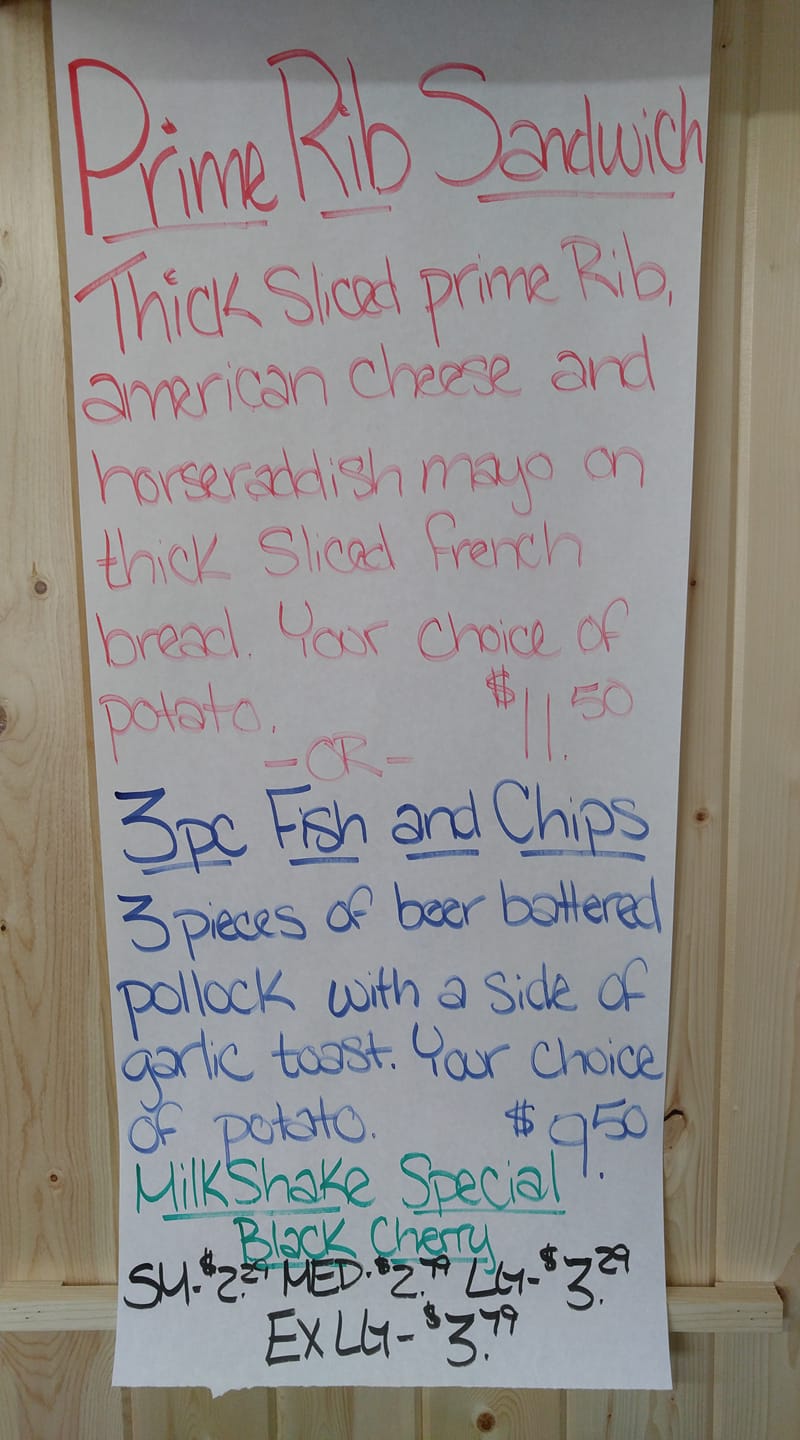 Prime Rib Sandwich
Thick Sliced prime Rib,
american cheese and
horseraddish mayo on
thick Sliced french
bread. Your choice of
potato. $11.50
-OR-
3pc Fish and Chips
3 pieces of beer battered
pollock with a side of
garlic toast. Your choice
of potato. $9.50
MilkShake Special
Black Cherry
SM-$2.29 MED-$2.79 LG-$3.29
EX LG-$3.79